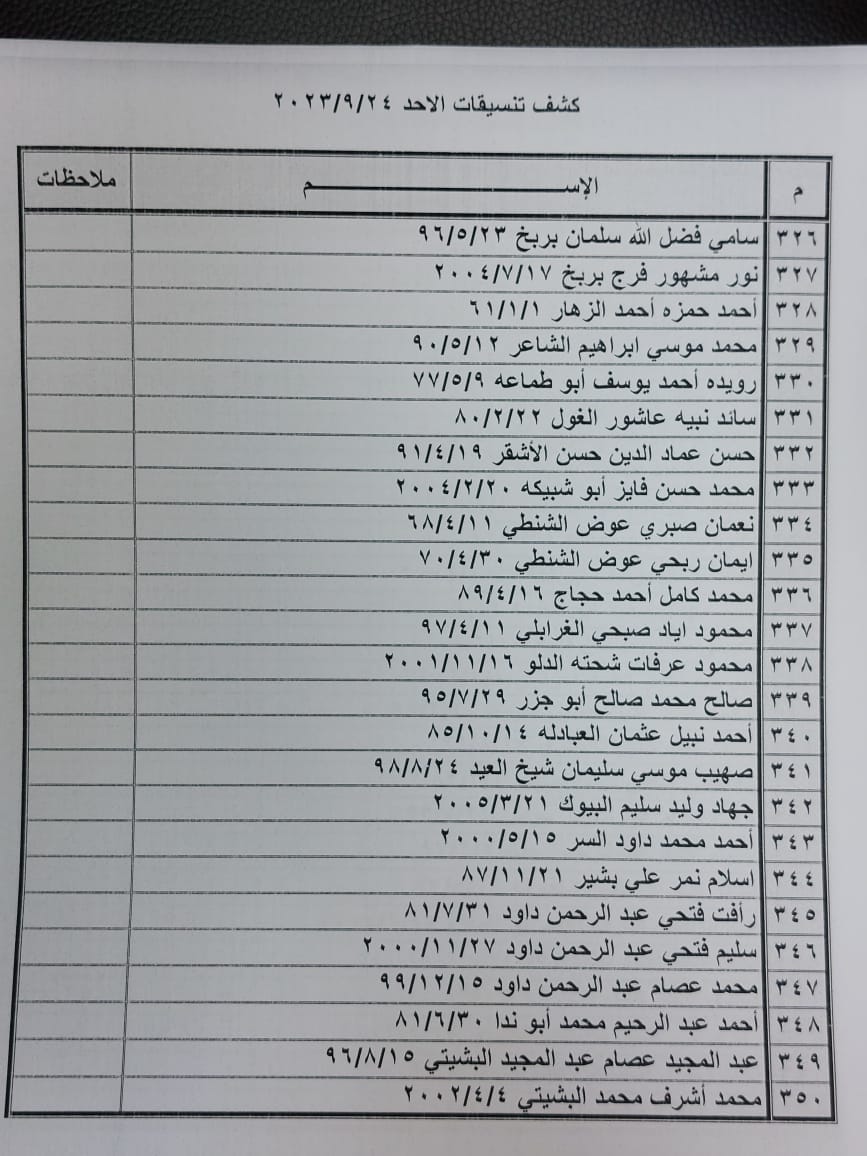 كشف تنسيقات الاحد ٢٠٢٣/٩/٢٤
م الإســـــــــم ملاحظات
٣٢٦ سامي فضل الله سلمان بربخ ٩٦/٥/٢٣
٣٢٧ نور مشهور فرج بربخ ٢٠٠٤/٧/١٧
٣٢٨ أحمد حمزه أحمد الزهار ٦١/١/١
٣٢٩ محمد موسي ابراهيم الشاعر ٩٠/٥/١٢
٣٣٠ رويده أحمد يوسف أبو طماعه ٧٧/٥/٩
٣٣١ سائد نبيه عاشور الغول ٨٠/٢/٢٢
٣٣٢ حسن عماد الدين حسن الأشقر ٩١/٤/١٩
٣٣٣ محمد حسن فايز أبو شبيكه ٢٠٠٤/٢/٢٠
٣٣٤ نعمان صبري عوض الشنطي ٦٨/٤/١١
٣٣٥ ايمان ربحي عوض الشنطي ٧٠/٤/٣٠
٣٣٦ محمد كامل أحمد حجاج ٨٩/٤/١٦
٣٣٧ محمود اياد صبحي الغرابلي ٩٧/٤/١١
٣٣٨ محمود عرفات شحته الدلو ٢٠٠١/١١/١٦
٣٣٩ صالح محمد صالح أبو جزر ٩٥/٧/٢٩
٣٤٠ أحمد نبيل عثمان العبادله ٨٥/١٠/١٤
٣٤١ صهيب موسي سليمان شيخ العيد ٩٨/٨/٢٤
٣٤٢ جهاد وليد سليم البيوك ٢٠٠٥/٣/٢١
٣٤٣ أحمد محمد داود السر ٢٠٠٠/٥/١٥
٣٤٤ اسلام نمر علي بشير ٨٧/١١/٢١
٣٤٥ رأفت فتحي عبد الرحمن داود ٨١/٧/٣١
٣٤٦ سليم فتحي عبد الرحمن داود ٢٠٠٠/١١/٢٧
٣٤٧ محمد عصام عبد الرحمن داود ٩٩/١٢/١٥
٣٤٨ أحمد عبد الرحيم محمد أبو ندا ٨١/٦/٣٠
٣٤٩ عبد المجيد عصام عبد المجيد البشيتي ٩٦/٨/١٥
٣٥٠ محمد أشرف محمد البشيتي ٢٠٠٢/٤/٤